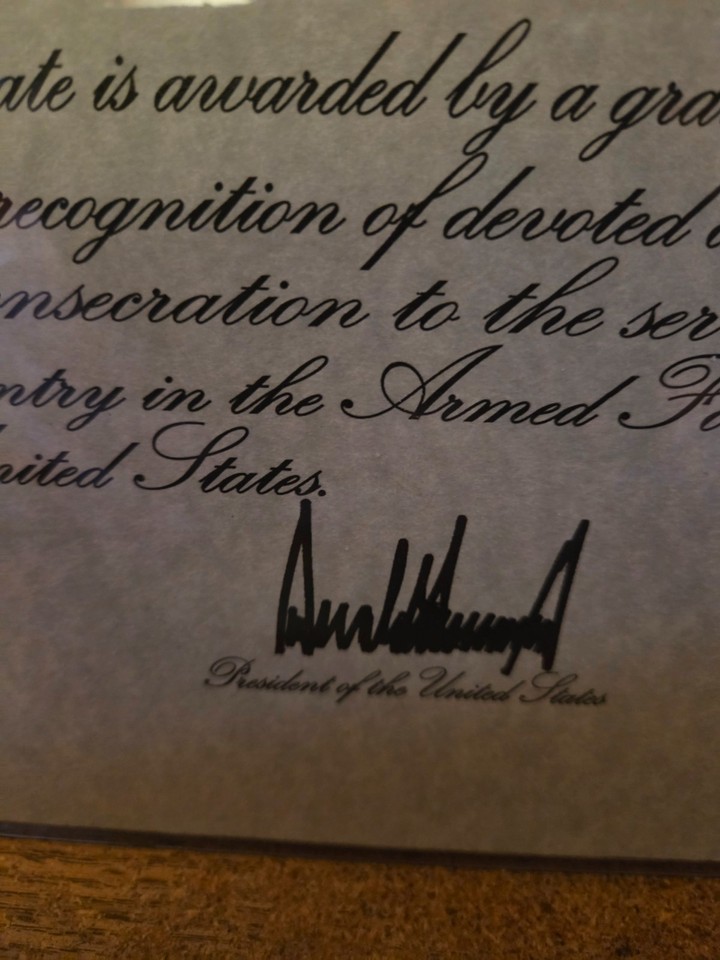 ate is awarded by a gra
recognition of devoted a
onsecration to the ser
ntry in the Armed Fo
nited States.
Donald Trump
President of the United States